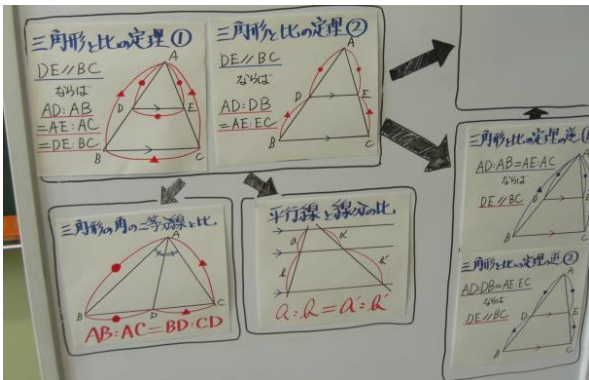 三角形と比の定理①
DE//BC
ならば
AD:AB
=AE:AC
=DE:BC
A
D
E
B
C
三角形と比の定理②
DE//BC
ならば
AD:DB
=AE:EC
A
D
E
B
C
三角形の角の二等分線と比
A
B
D
C
AB:AC=BD:CD
平行線と線分の比
a
a'
b
b'
a:b=a':b'
三角形と比の定理の逆①
AD:AB=AE:AC
ならば
DE//BC
A
D
E
B
C
三角形と比の定理の逆②
AD:DB=AE:EC
ならば
DE//BC
A
D
E
B
C